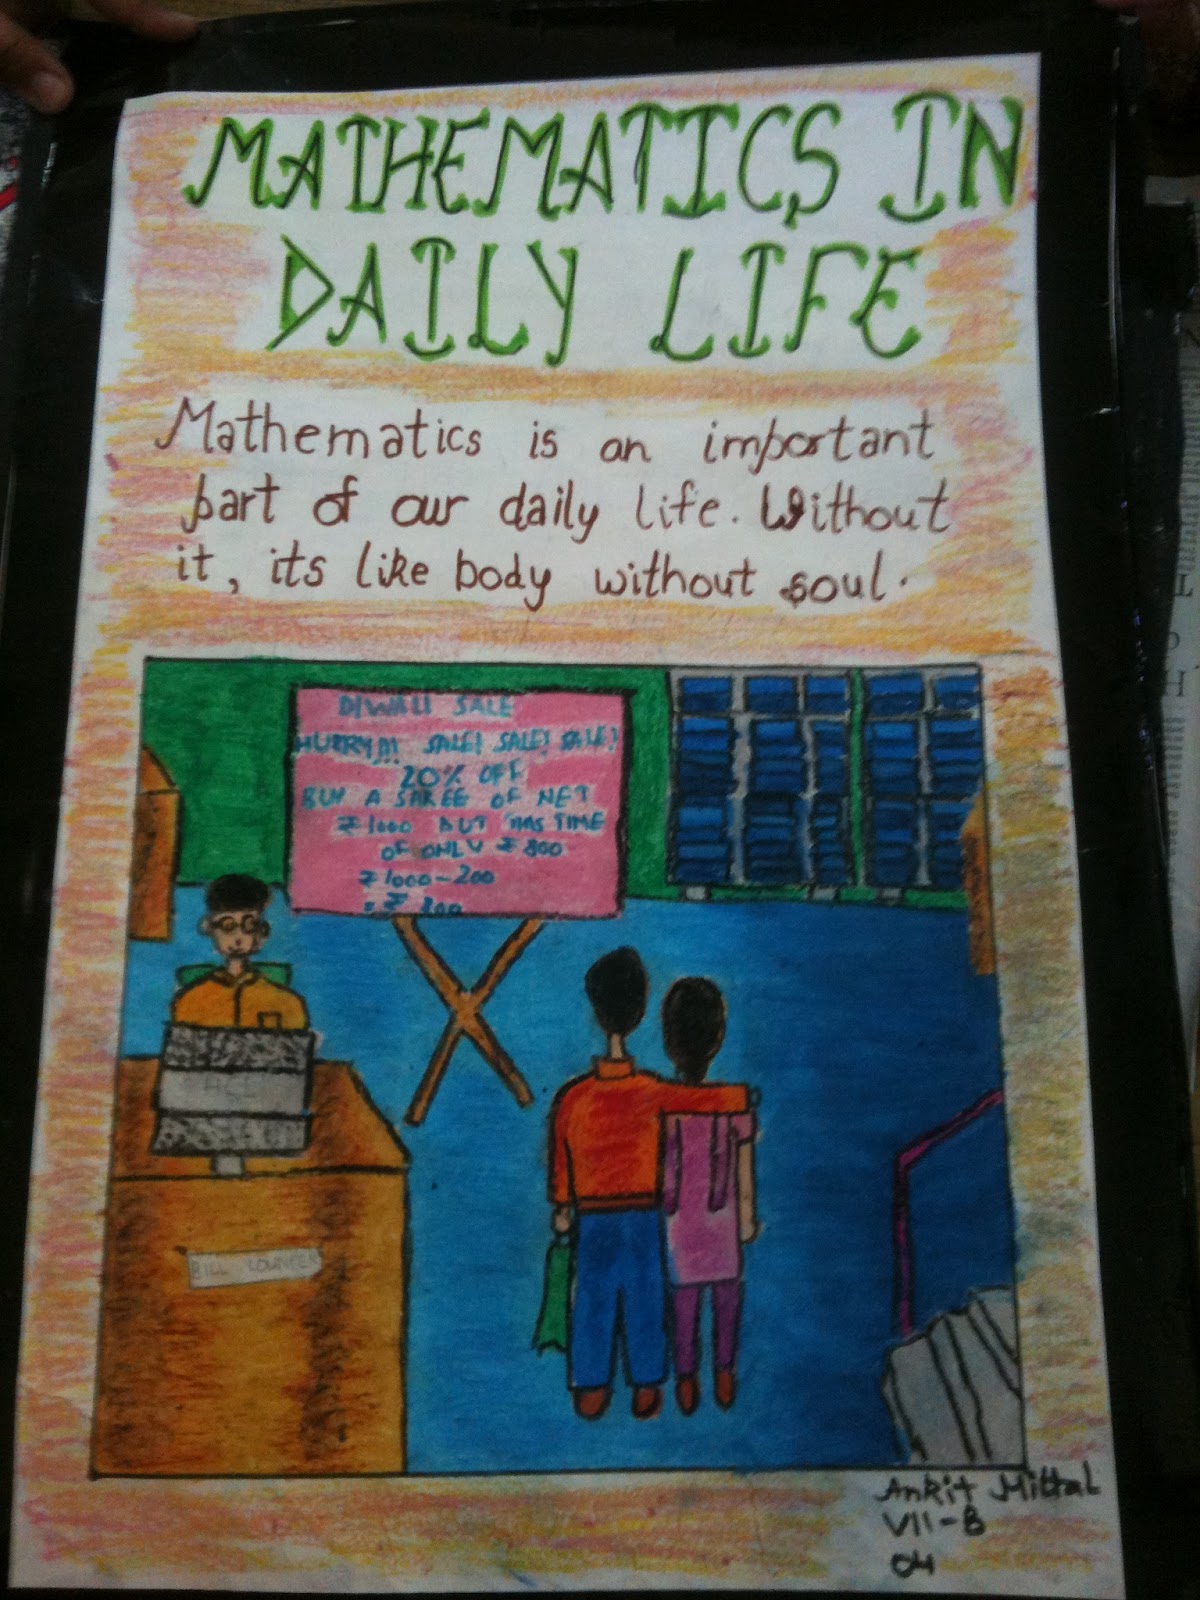 MATHEMATICS IN
DAILY LIFE
Mathematics is an important
part of our daily life. Without
it, its like body without soul.
DIWALI SALE
HURRY!!! SALE! SALE! SALE!
20% OFF
BUY A SAREE OF NET
₹ 1000 BUT THIS TIME
OF ONLY ₹ 800
₹ 1000-200
= ₹ 800
ACER
BILL COUNTER
Ankit Mittal
VII-B
04